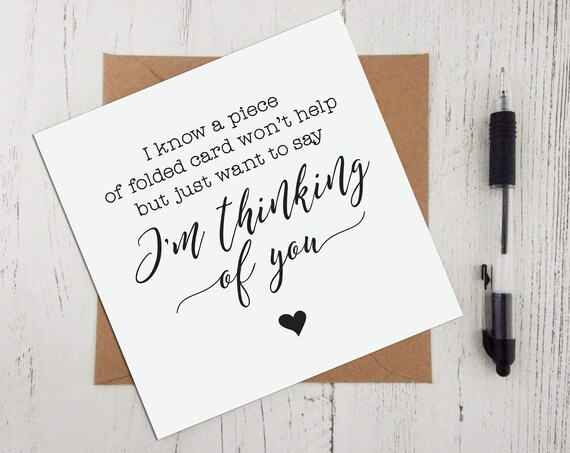 I know a piece
of folded card won't help
but just want to say
I'm thinking
of you